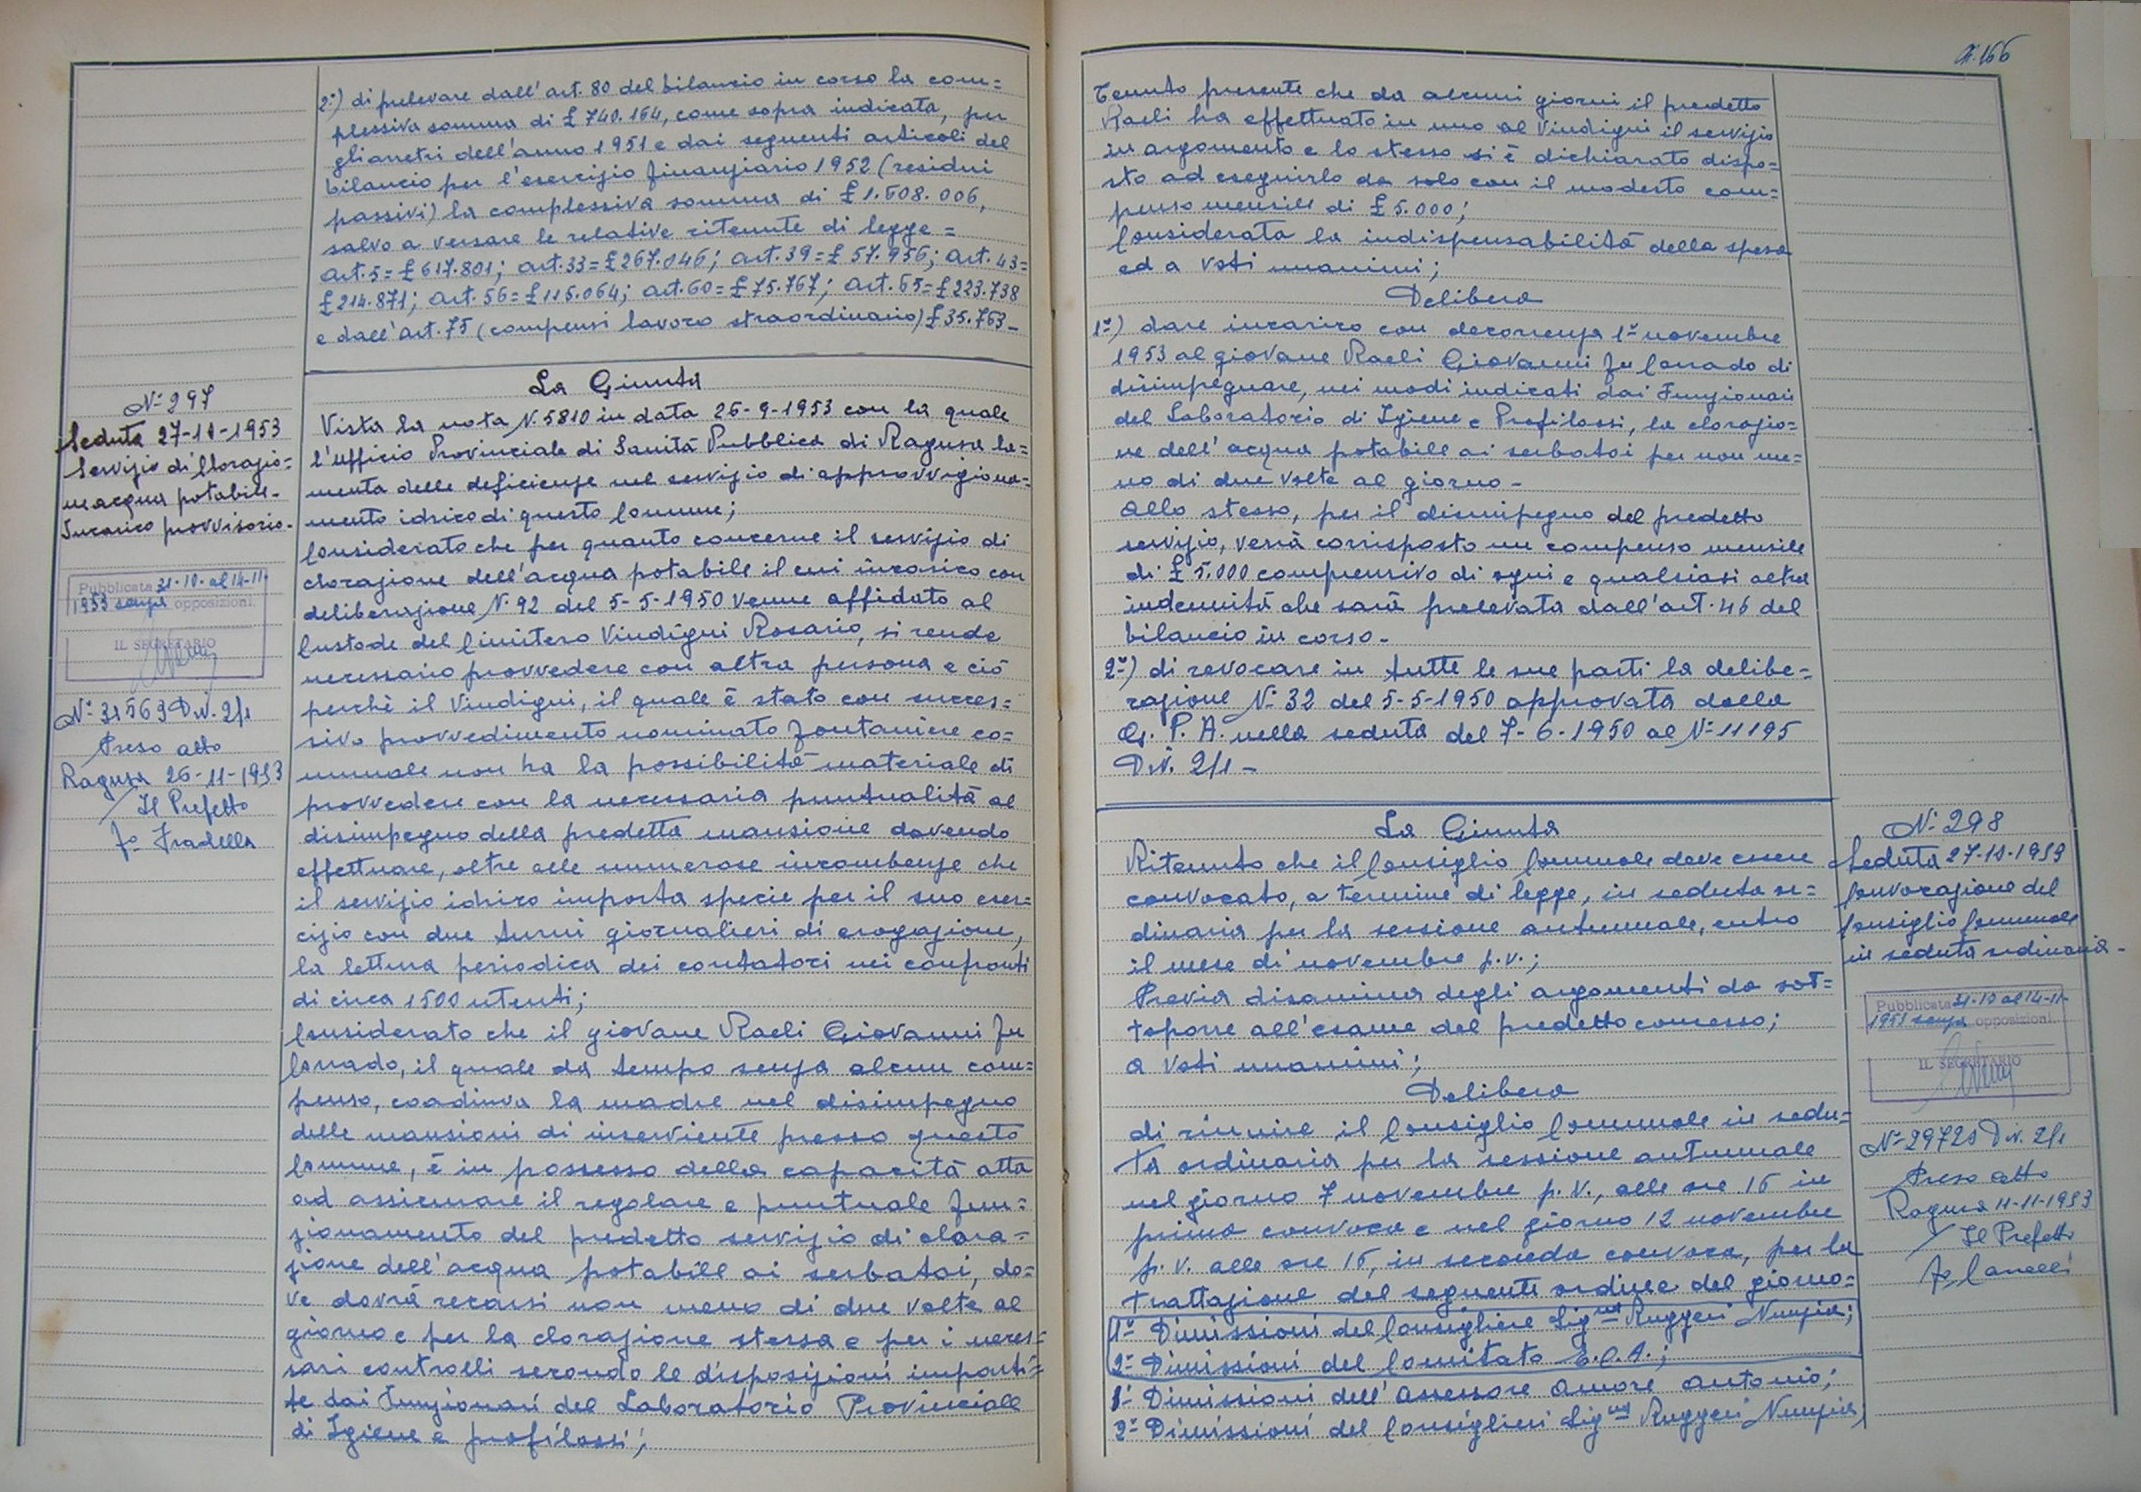 2º) di prelevare dall'art. 80 del bilancio in corso la com=
plessiva somma di £ 740.164, come sopra indicata, per
gli arretri dell'anno 1951 e dai seguenti articoli del
bilancio per l'esercizio finanziario 1952 (residui
passivi) la complessiva somma di £ 1.608.006,
salvo a versare le relative ritenute di legge =
art. 5=£ 617.801; art. 33=£ 267.046; art. 39=£ 57.956; art. 43=
£ 214.871; art. 56=£ 115.064; art. 60=£ 75.767; art. 65=£ 223.738
e dall'art. 75 (compensi lavoro straordinario) £ 35.763-
Nº 297
Seduta 27-10-1953
Servizio di Clorazio=
ne acqua potabile-
Incarico provvisorio-
Pubblicata 31-10- al 14-11-
1953 senza opposizioni.
IL SEGRETARIO
Nº 31563 Div. 2/1
Preso atto
Ragusa 26-11-1953
Il Prefetto
Fº Fradella
La Giunta
Vista la nota N. 5810 in data 26-9-1953 con la quale
l'Ufficio Provinciale di Sanità Pubblica di Ragusa la=
menta delle deficienze nel servizio di approvvigiona=
mento idrico di questo Comune;
Considerato che per quanto concerne il servizio di
clorazione dell'acqua potabile il cui incarico con
deliberazione N. 92 del 5-5-1950 venne affidato al
Custode del Cimitero Vindigni Rosario, si rende
necessario provvedere con altra persona e ciò
perchè il Vindigni, il quale è stato con succes=
sivo provvedimento nominato fontaniere co=
munale non ha la possibilità materiale di
provvedere con la necessaria puntualità al
disimpegno della predetta mansione dovendo
effettuare, oltre alle numerose incombenze che
il servizio idrico importa specie per il suo eser=
cizio con due turni giornalieri di erogazione,
la lettura periodica dei contatori nei confronti
di circa 1500 utenti;
Considerato che il giovane Raeli Giovanni fu
Corrado, il quale da tempo senza alcun com=
penso, coadiuva la madre nel disimpegno
delle mansioni di inserviente presso questo
Comune, è in possesso della capacità atta
ad assicurare il regolare e puntuale fun=
zionamento del predetto servizio di clora=
zione dell'acqua potabile ai serbatoi, do=
ve dovrà recarsi non meno di due volte al
giorno e per la clorazione stessa e per i neces=
sari controlli secondo le disposizioni imparti=
te dai Funzionari del Laboratorio Provinciale
di Igiene e profilassi;
166
Tenuto presente che da alcuni giorni il predetto
Raeli ha effettuato in uno al Vindigni il servizio
in argomento e lo stesso si è dichiarato dispo=
sto ad eseguirlo da solo con il modesto com=
penso mensile di £ 5.000;
Considerata la indispensabilità della spesa
ed a voti unanimi;
Delibera
1º) dare incarico con decorrenza 1º novembre
1953 al giovane Raeli Giovanni fu Corrado di
disimpegnare, nei modi indicati dai Funzionari
del Laboratorio di Igiene e Profilassi, la clorazio=
ne dell'acqua potabile ai serbatoi per non me=
no di due volte al giorno-
Allo stesso, per il disimpegno del predetto
servizio, verrà corrisposto un compenso mensile
di £ 5.000 comprensivo di ogni e qualsiasi altra
indennità che sarà prelevata dall'art. 46 del
bilancio in corso-
2º) di revocare in tutte le sue parti la delibe=
razione Nº 32 del 5-5-1950 approvata dalla
G. P. A. nella seduta del 7-6-1950 al Nº 11195
Div. 2/1-
La Giunta
Ritenuto che il Consiglio Comunale deve essere
convocato, a termine di legge, in seduta or=
dinaria per la sessione autunnale, entro
il mese di novembre p.v.;
Previa disamina degli argomenti da sot=
toporre all'esame del predetto consesso;
a voti unanimi;
Delibera
di riunire il Consiglio Comunale in sedu=
ta ordinaria per la sessione autunnale
nel giorno 7 novembre p.v., alle ore 16 in
prima convoca e nel giorno 12 novembre
p.v. alle ore 16, in seconda convoca, per la
trattazione del seguente ordine del giorno=
1º- Dimissioni del Consigliere Sig.na Ruggeri Nunzia;
2º- Dimissioni del Comitato E.C.A.;
1º- Dimissioni dell'Assessore Amore Antonio;
2º- Dimissioni del Consiglieri Sig.na Ruggeri Nunzia;
Nº 298
Seduta 27-10-1953
Convocazione del
Consiglio Comunale
in seduta ordinaria-
Pubblicata 31-10 al 14-11-
1951 senza opposizioni.
IL SEGRETARIO
Nº 29729 Div. 2/1
Preso atto
Ragusa 11-11-1953
Il Prefetto